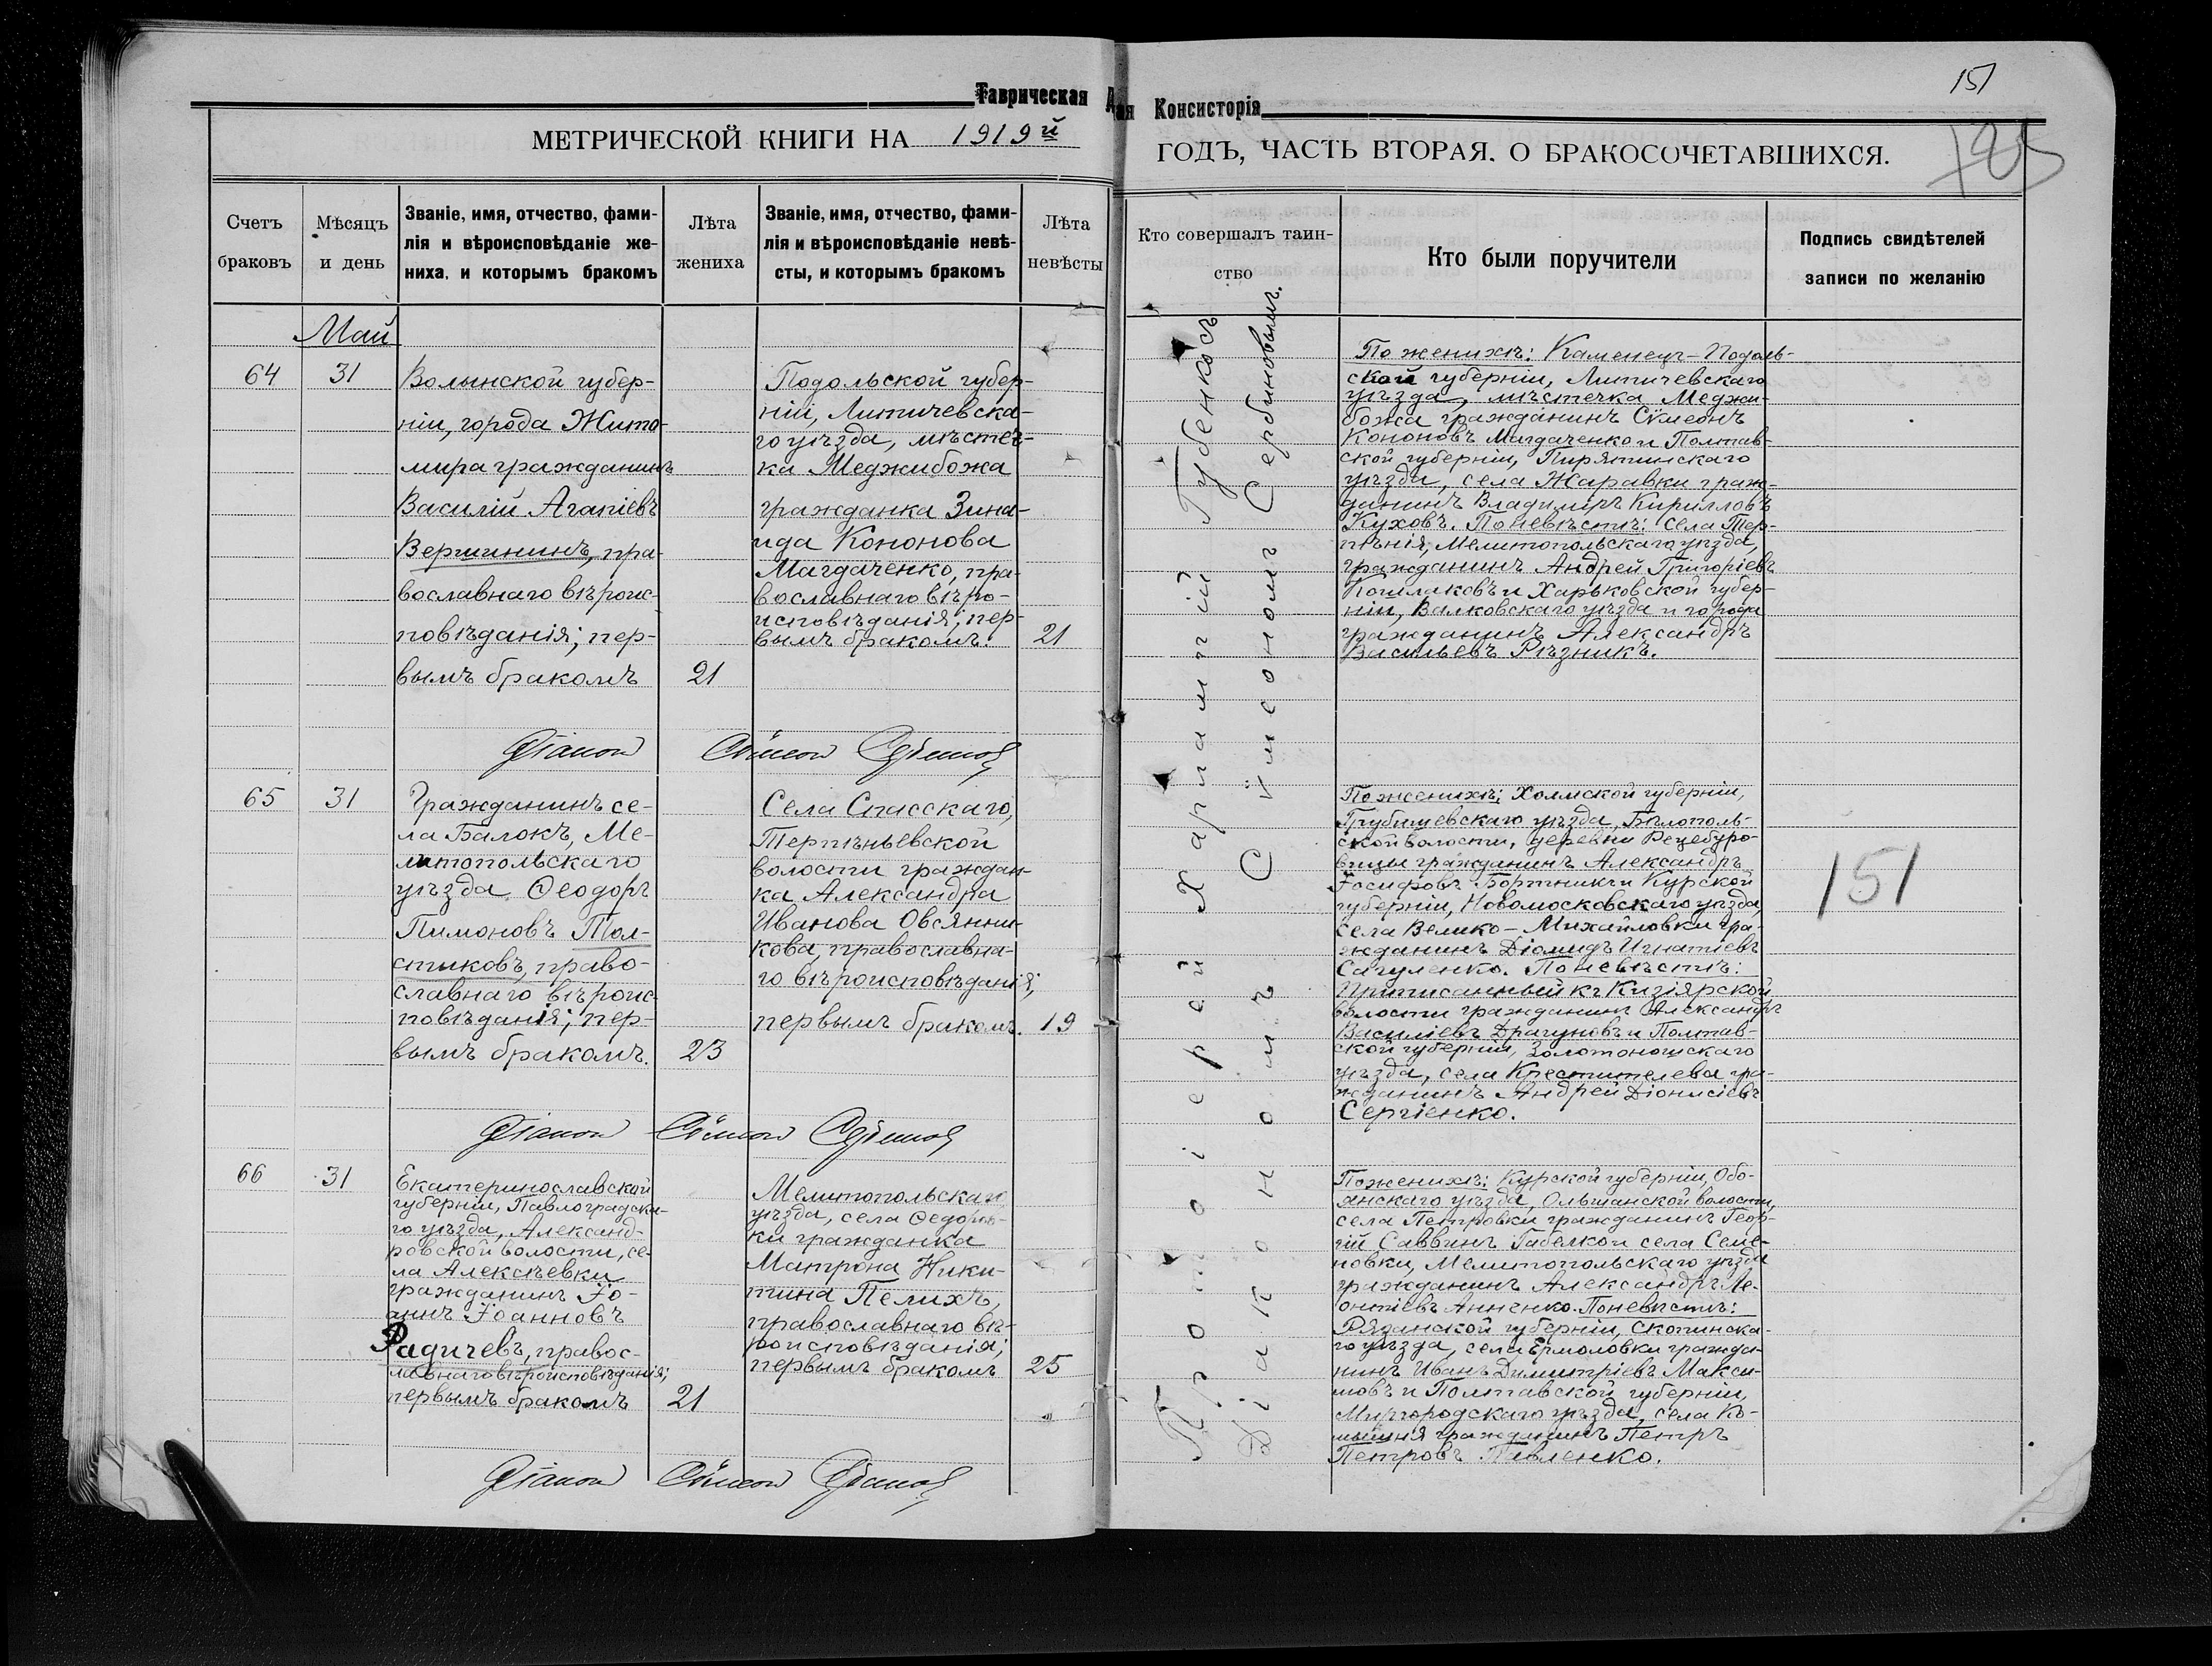 151
Таврическая
Консисторія
МЕТРИЧЕСКОЙ КНИГИ НА 1919й
ГОДЪ, ЧАСТЬ ВТОРАЯ. О БРАКОСОЧЕТАВШИХСЯ.
185
Счетъ
браковъ
Мѣсяцъ
и день
Званіе, имя, отчество, фами-
лія и вѣроисповѣданіе же-
ниха, и которымъ бракомъ
Лѣта
жениха
Званіе, имя, отчество, фами-
лія и вѣроисповѣданіе невѣ-
сты, и которымъ бракомъ
Лѣта
невѣсты
Кто совершалъ таин-
ство
Кто были поручители
Подпись свидѣтелей
записи по желанію
Май
64
31
Волынской губер-
ніи, города Жито-
мира гражданинъ
Василій Агапіевъ
Вершининъ, пра-
вославнаго вѣроис-
повѣданія; пер-
вымъ бракомъ
21
Подольской губер-
ніи, Литичевска-
го уѣзда, мѣстеч-
ка Меджибожа
гражданка Зина-
ида Кононова
Магдаченко, пра-
вославнаго вѣро-
исповѣданія; пер-
вымъ бракомъ.
21
По женихѣ: Каменецъ-Подоль-
ской губерніи, Литичевскаго
уѣзда, мѣстечка Меджи-
божа гражданинъ Сѵмеонъ
Кононовъ Магдаченко и Полтав-
ской губерніи, Пирятинскаго
уѣзда, села Жаравки граж-
данинъ Владимиръ Кирилловъ
Куховъ. По невѣстѣ: села Тер-
пѣнія, Мелитопольскаго уѣзда,
гражданинъ Андрей Григоріевъ
Кошлаковъ и Харьковской губер-
ніи, Валковскаго уѣзда и города
гражданинъ Александръ
Васильевъ Рѣзникъ.
Діаконъ Сѵмеонъ
65
31
Гражданинъ се-
ла Балокъ, Ме-
литопольскаго
уѣзда Ѳеодоръ
Пимоновъ Тол-
стиковъ, право-
славнаго вѣроис-
повѣданія; пер-
вымъ бракомъ.
23
Села Спасскаго,
Терпѣньевской
волости граждан-
ка Александра
Иванова Овсянни-
кова, православна-
го вѣроисповѣданія;
первымъ бракомъ.
19
По женихѣ: Холмской губерніи,
Грубишевскаго уѣзда, Бѣлополь-
ской волости, деревни Рецебуро-
вицы гражданинъ Александръ
Іосифовъ Бортникъ и Курской
губерніи, Новомосковскаго уѣзда,
села Велико-Михайловки гра-
жданинъ Діомидъ Игнатіевъ
Сагуленко. По невѣстѣ:
Приписанный къ Кизіярской
волости гражданинъ Александръ
Василіевъ Драгуновъ и Полтав-
ской губерніи, Золотоношскаго
уѣзда, села Крестителева гра-
жданинъ Андрей Діонисіевъ
Сергіенко.
151
Діаконъ Сѵмеонъ
66
31
Екатеринославской
губерніи, Павлоградска-
го уѣзда, Александ-
ровской волости, се-
ла Алексѣевки
гражданинъ Іо-
аннъ Іоанновъ
Радичевъ, правос-
лавнаго вѣроисповѣданія;
первымъ бракомъ
21
Мелитопольскаго
уѣзда, села Ѳедоров-
ки гражданка
Матрона Ники-
тина Пелихъ,
православнаго вѣ-
роисповѣданія;
первымъ бракомъ
25
По женихѣ: Курской губерніи, Обо-
янскаго уѣзда, Ольшанской волости,
села Петровки гражданинъ Геор-
гій Саввинъ Габелкои села Семе-
новки, Мелитопольскаго уѣзда
гражданинъ Александръ Ле-
онтіевъ Анненко. По невѣстѣ:
Рязанской губерніи, Скопинска-
го уѣзда, села Ермоловки гражда-
нинъ Иванъ Димитріевъ Макси-
мовъ и Полтавской губерніи,
Миргородскаго уѣзда, села Ко-
мышня гражданинъ Петръ
Петровъ Павленко.
Діаконъ Сѵмеонъ
Протоіерей Харлампій Губенкосъ
Діакономъ Сѵмеономъ Сербиновымъ.